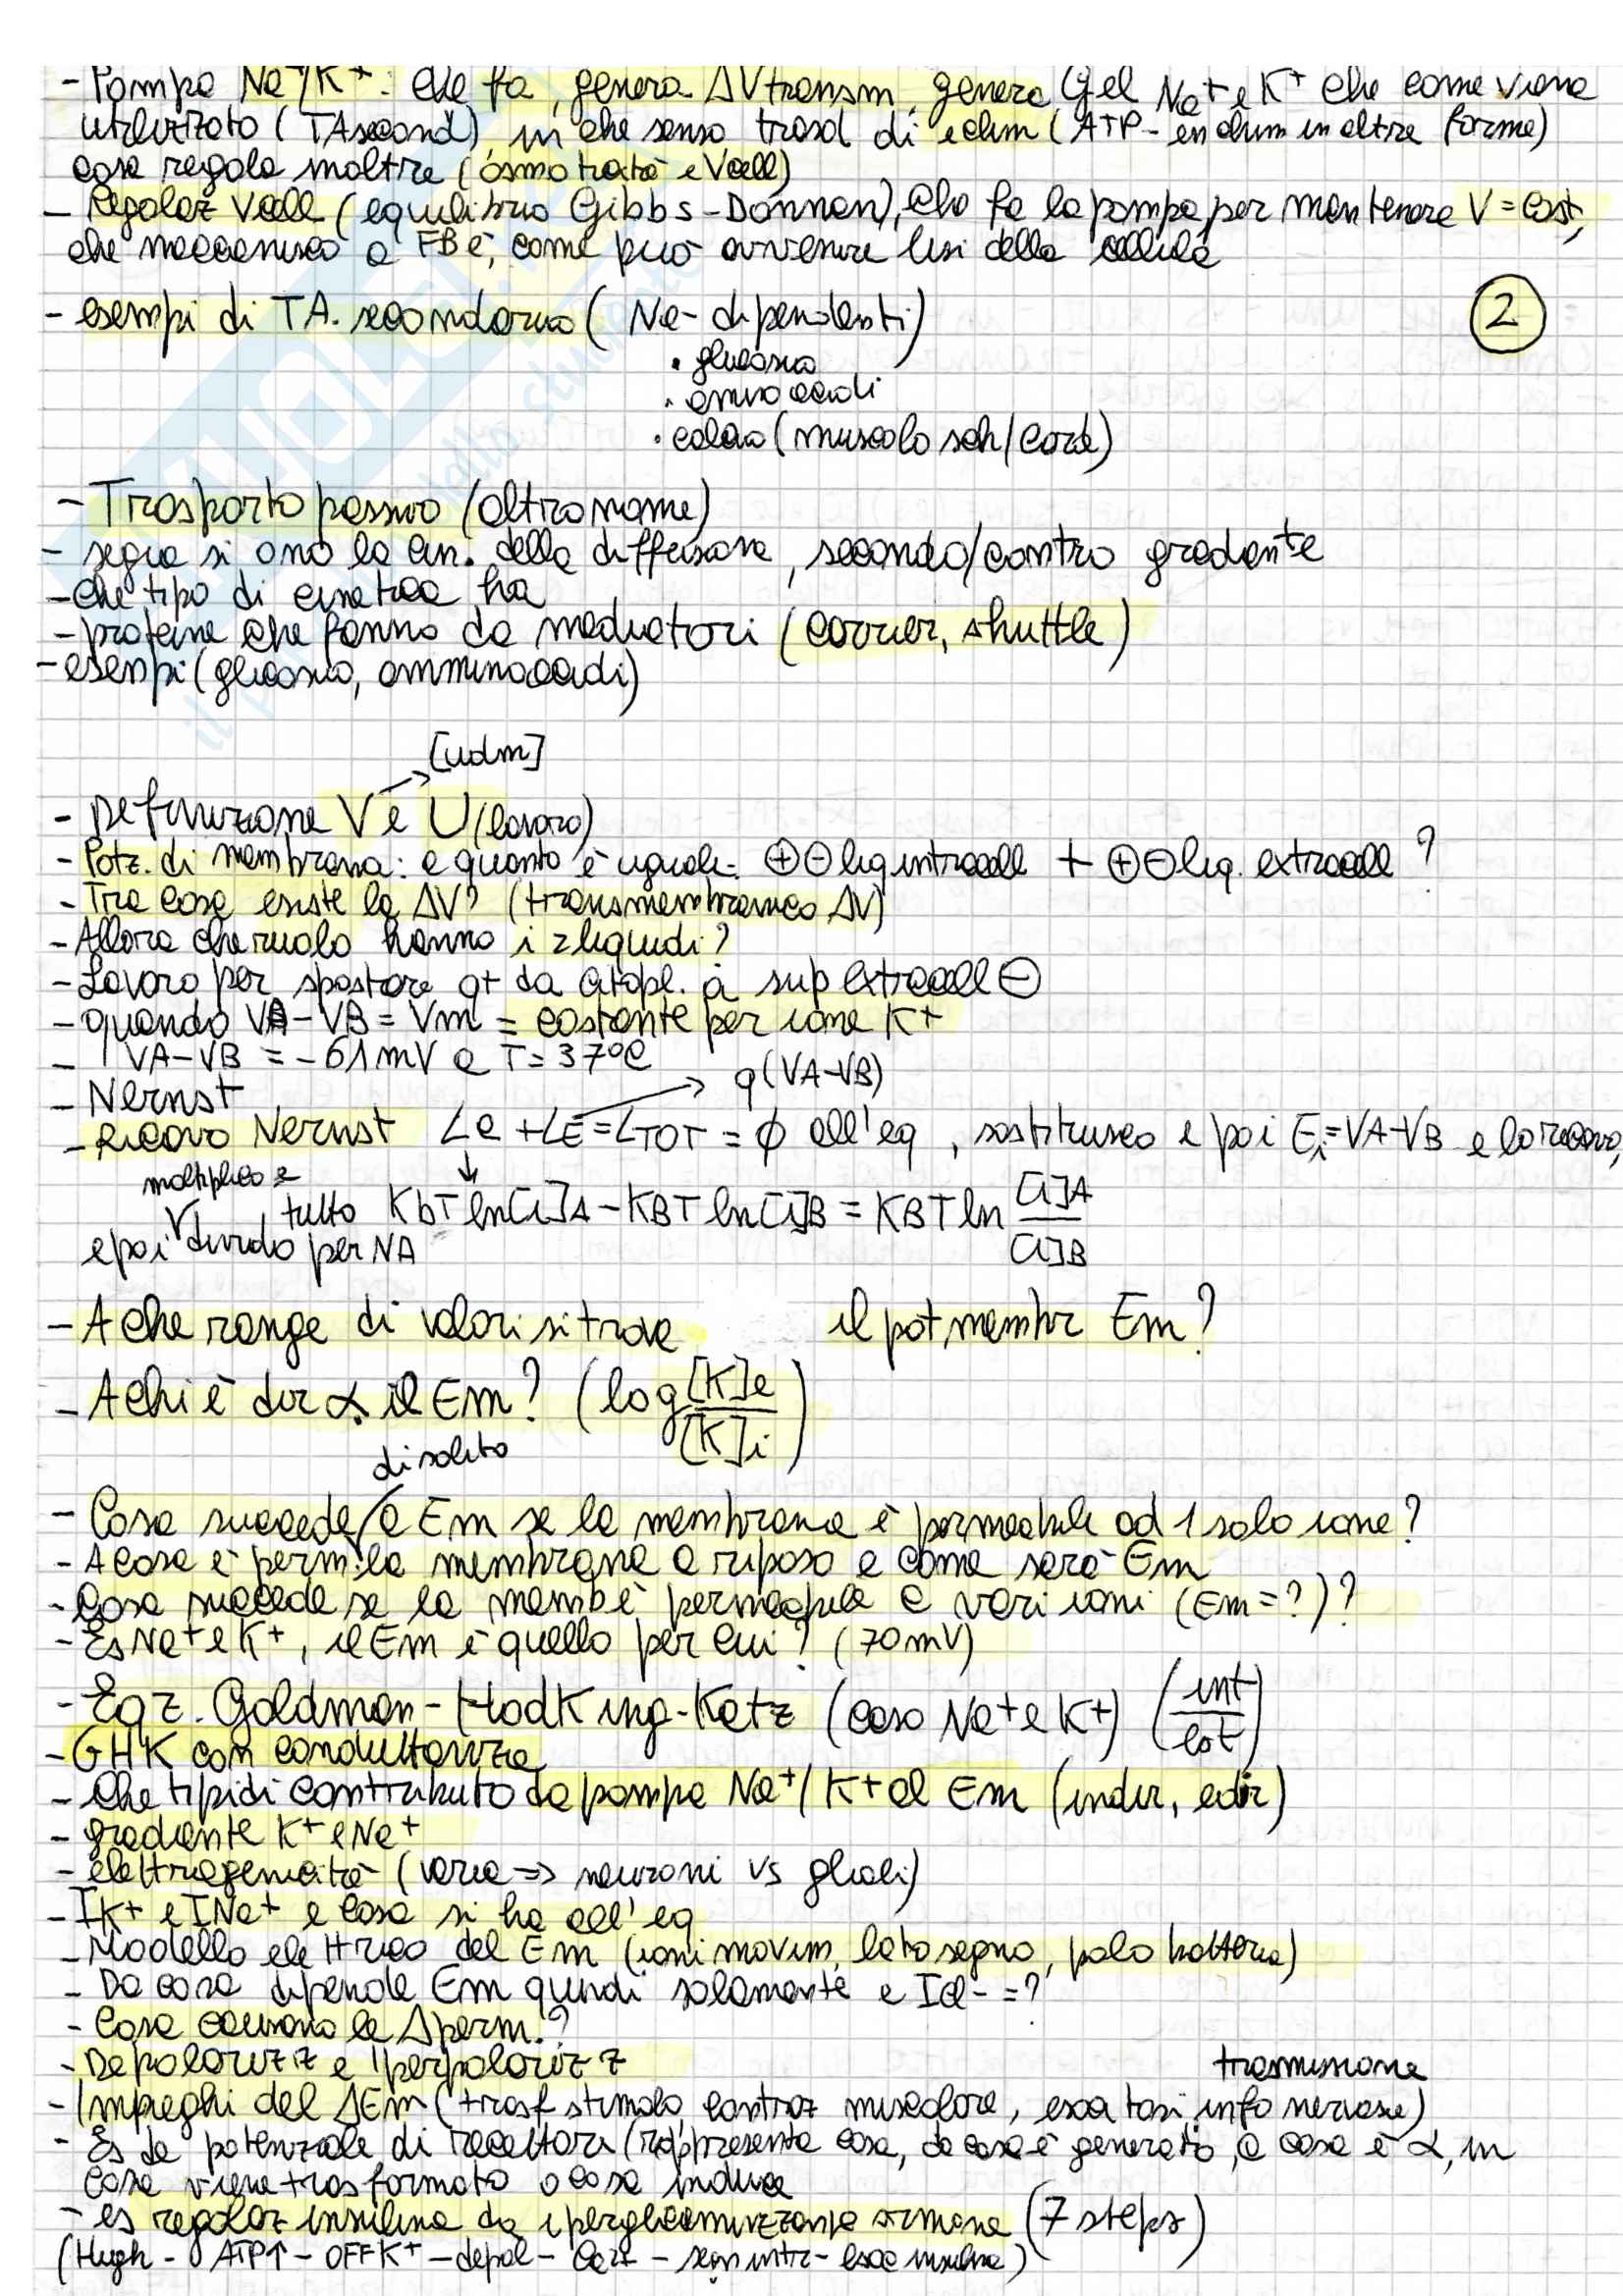 - Pompa Na+/K+: che fa, genera ΔVtransm, genera Gel Na+ e K+ che come viene
utilizzato (TAsecond), in che senso trasd di e chim (ATP - en chim in altre forme)
cosa regola inoltre (osmolarità e Vcell)
- Regolaz Vcell (equilibrio Gibbs-Donnan), che fa la pompa per mantenere V = cost,
che meccanismo a FB è, come può avvenire lisi della cellula
- esempi di TA. secondario (Na-dipendenti)
2
• glucosio
• amino acidi
• calcio (muscolo sch/card)
- Trasporto passivo (altro nome)
- segue si o no la cin. della diffusione, secondo/contro gradiente
- che tipo di cinetica ha
- proteine che fanno da mediatori (carrier, shuttle)
- esempi (glucosio, amminoacidi)
[udm]
- Definizione V e U (lavoro)
- Potz. di membrana: a quanto è uguale: ⊕⊖ liq intracell + ⊕⊖ liq. extracell ?
- Tra cosa esiste la ΔV? (transmembranico ΔV)
- Allora che ruolo hanno i 2 liquidi?
- Lavoro per spostare q+ da citopl. a sup extracell ⊖
- quando VA-VB = Vm = costante per ione K+
- VA-VB = -61mV a T=37°C
- Nernst
q(VA-VB)
- Ricavo Nernst Lc + LE = LTOT = ϕ all'eq, sostituisco e poi Ei=VA-VB e lo ricavo,
moltiplico e
tutto KbT ln[i]A - KBT ln[i]B = KBT ln [i]A/[i]B
e poi divido per NA
- A che range di valori si trova il pot membr Em?
- A chi è dir α il Em? (log [K]e/[K]i)
di solito
- Cosa succede a Em se la membrana è permeabile ad 1 solo ione?
- A cosa è perm. la membrana a riposo e come sarà Em
- Cosa succede se la memb è permeabile a vari ioni (Em=?)?
- Es Na+ e K+, il Em è quello per cui? (70mV)
- Eqz. Goldman-Hodking-Katz (caso Na+ e K+) (int/est)
- GHK con conduttanza
- Che tipi di contributo da pompa Na+/K+ al Em (indir, e dir)
- gradiente K+ e Na+
- elettrogenicità (varia => neuroni vs gliali)
- IK+ e INa+ e cosa si ha all'eq
- Modello elettrico del Em (ioni movim, lato segno, polo batteria)
- Da cosa dipende Em quindi solamente e ICl- =?
- Cosa causano le Δperm.?
- Depolarizz e Iperpolarizz
trasmissione
- Impieghi del ΔEm (trasf stimolo, contraz muscolare, info nervose)
- Es da potenziale di recettore (rappresenta cosa, da cosa è generato, a cosa è α, in
cosa viene trasformato o cosa induce
- es regolaz insulina da iperglicemizzante ormone (7 steps)
(High - ATP↑ - OFF K+ - depol - Ca2+ - - esce insulina)